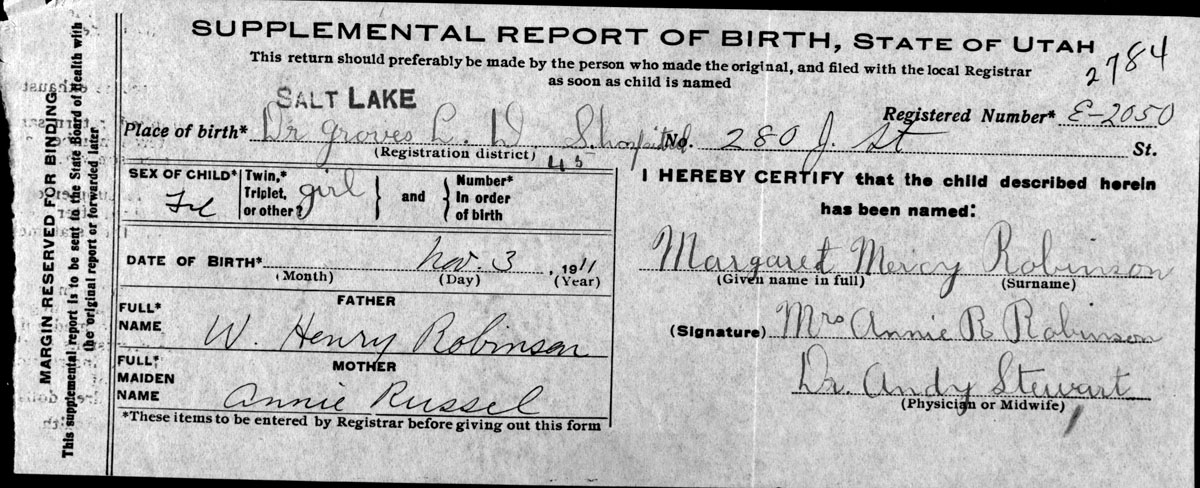 SUPPLEMENTAL REPORT OF BIRTH, STATE OF UTAH
2784
This return should preferably be made by the person who made the original, and filed with the local Registrar
as soon as child is named
SALT LAKE
Registered Number* E-2050
Place of birth* Dr Groves L. D. S. hospital No. 280 J. St St.
(Registration district) 45
SEX OF CHILD* Fel
Twin,* Triplet, or other? girl } and { Number* In order of birth
DATE OF BIRTH* Nov. 3, 1911
(Month) (Day) (Year)
FATHER
FULL* NAME W. Henry Robinson
MOTHER
FULL* MAIDEN NAME Annie Russel
*These items to be entered by Registrar before giving out this form
I HEREBY CERTIFY that the child described herein
has been named:
Margaret Mercy Robinson
(Given name in full) (Surname)
(Signature) Mrs Annie R Robinson
Dr. Andy Stewart
(Physician or Midwife)
MARGIN RESERVED FOR BINDING
This supplemental report is to be sent to the State Board of Health with
the original report or forwarded later